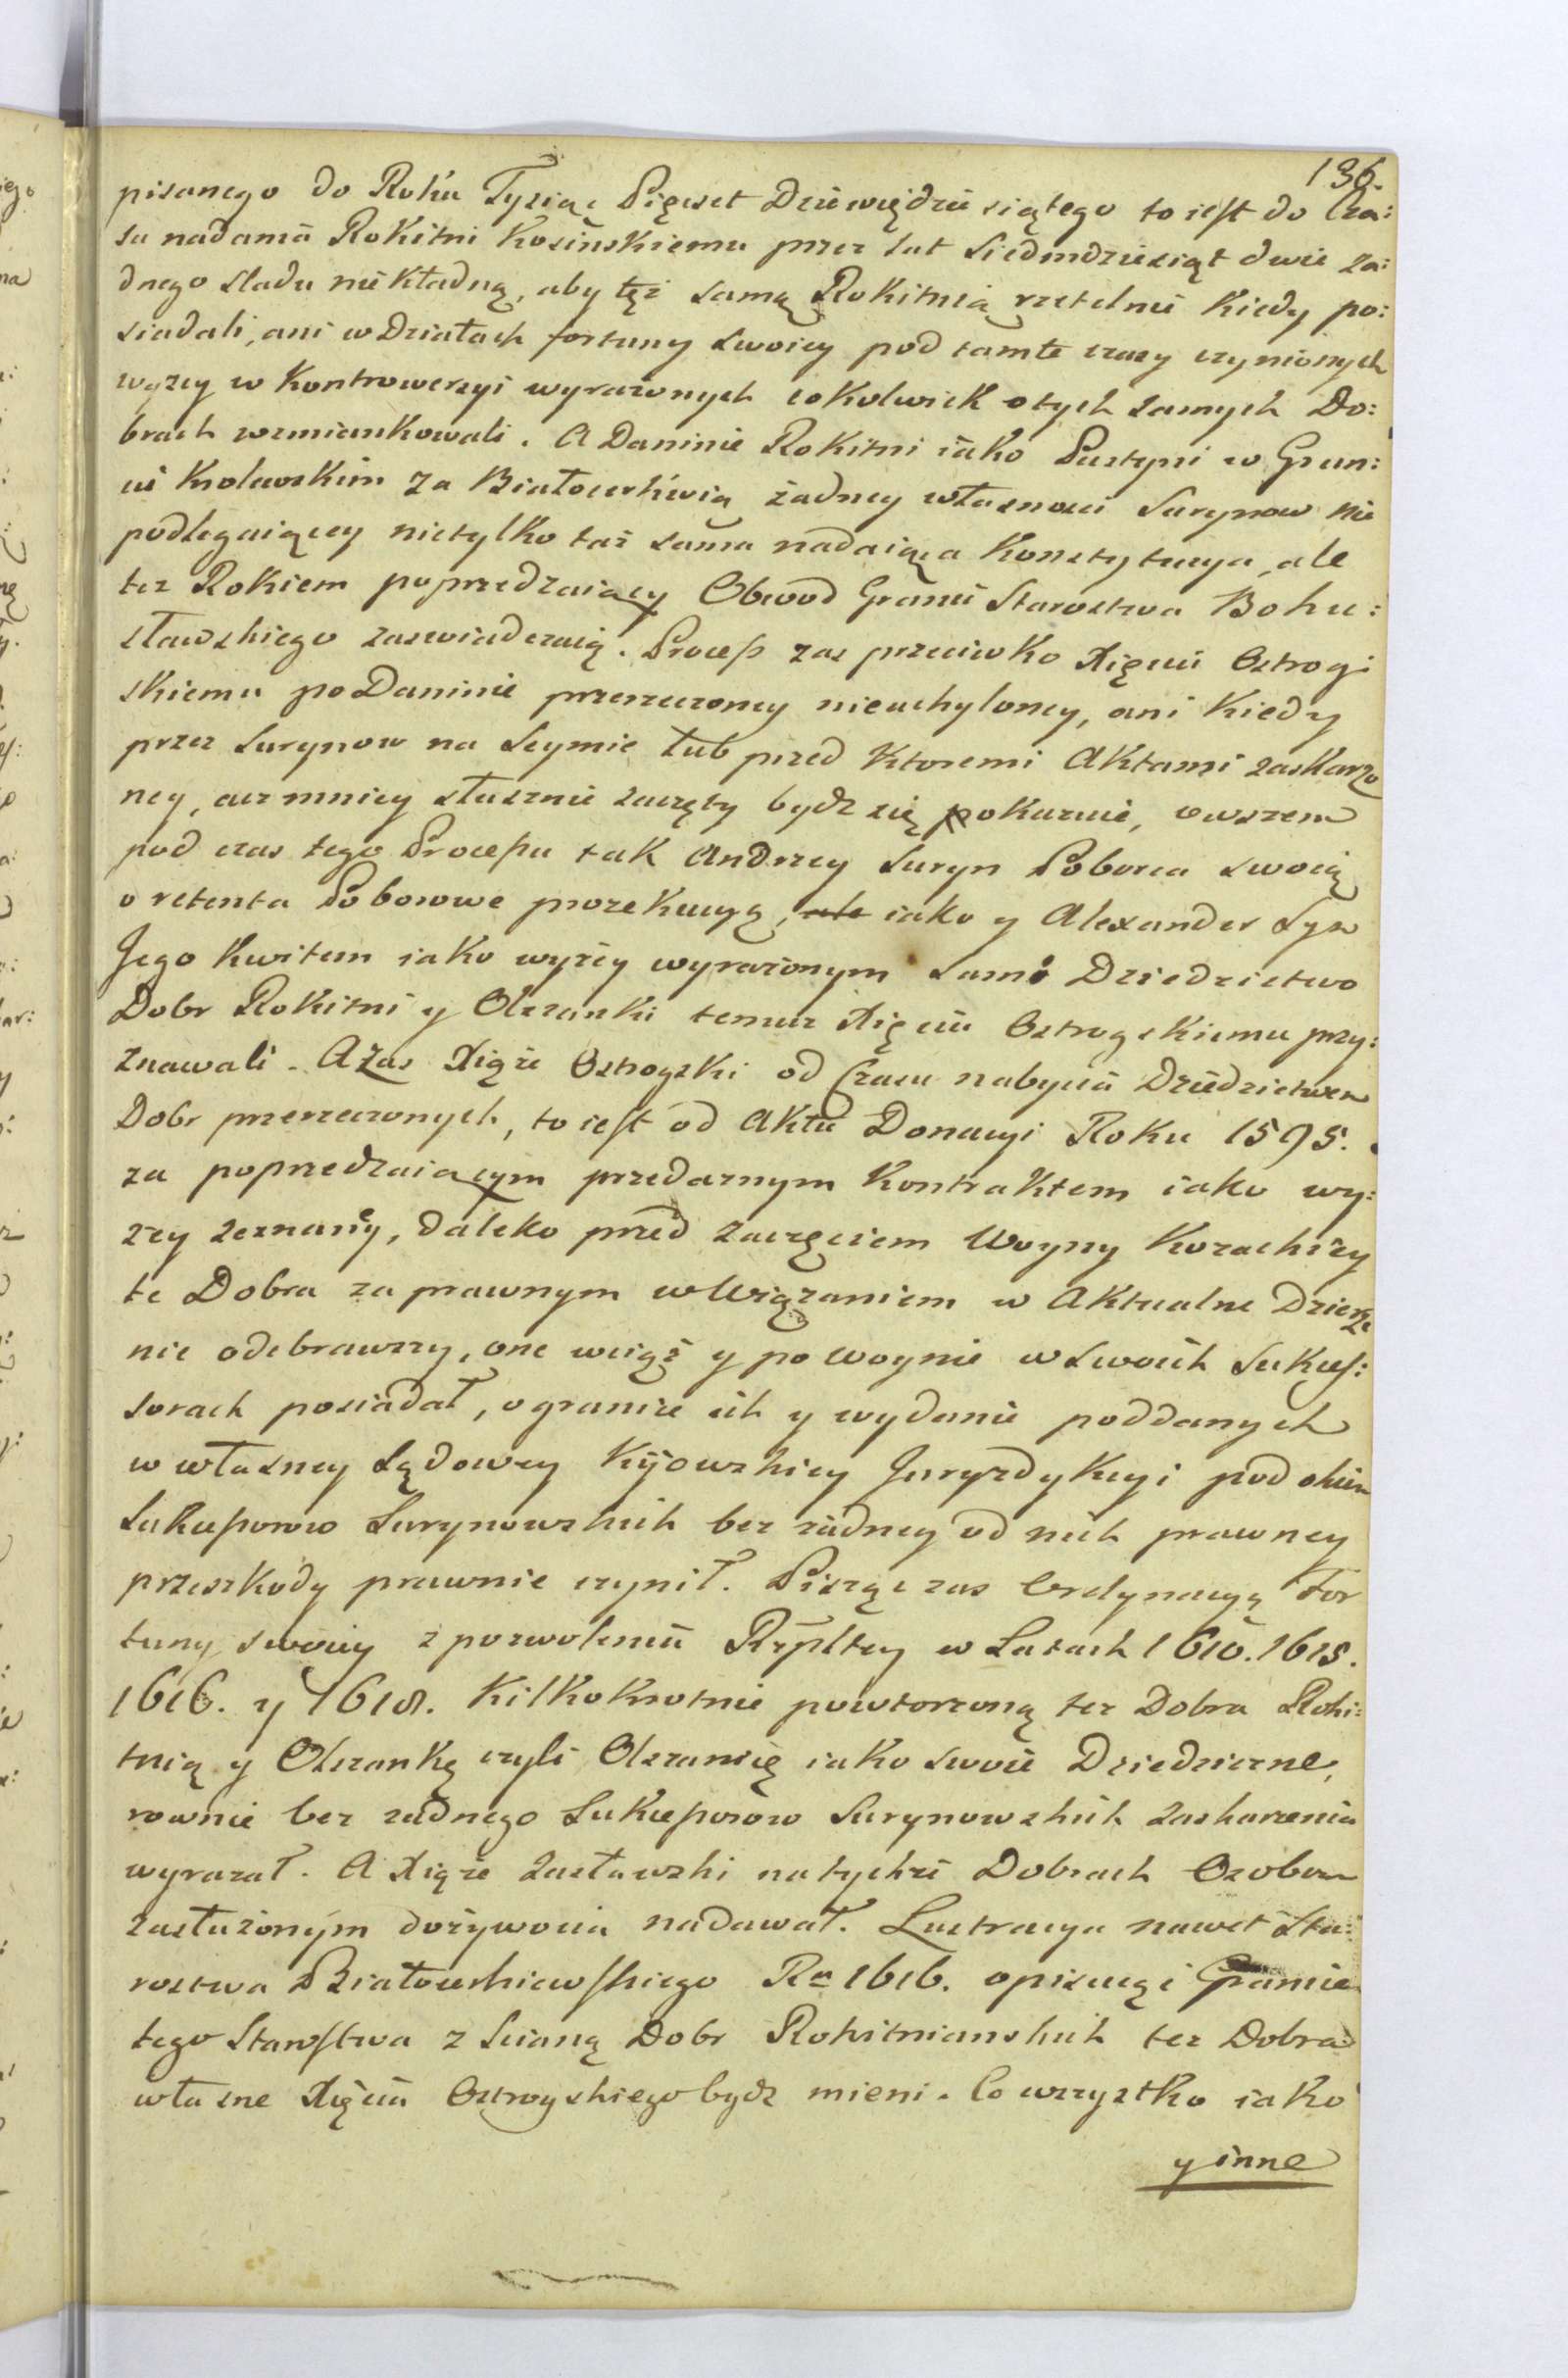 136.
pisanego do Roku Tysiąc Pięcset Dziewiędziesiątego to iest do Cza:
su nadania Rokitni Kosinskiemu przez lat siedmdziesiąt dwie ża:
dnego sladu nie kładną, aby tęż samą Rokitnią rzetelnie kiedy po:
siadali, ani w Działach fortuny swoiey pod tamte czasy czynionych
wyzey w Kontrowersyi wyrażonych cokolwiek o tych samych Do:
brach wzmiankowali. A Daninie Rokitni iako Pustyni w Grun:
cie Krolewskim za Białocerkwią żadney własnosci Surynow nie
podlegaiącey nietylko taż sama nadaiąca Konstytucya, ale
też Rokiem poprzedzaiący Obwod Granic Starostwa Bohu:
sławskiego zaswiadczaią. Process zas przeciwko Xięciu Ostrog:
skiemu po Daninie przerzeczoney nieuchyloney, ani kiedy
przez Surynow na Seymie lub przed ktoremi Aktami zaskarżo
ney, acz mniey słusznie zaczęty bydz się pokazuie, owszem
pod czas tego Processu tak Andrzey Suryn Poborca swoią
o retenta Poborowe prozekucyą, ale iako y Alexander Syn
Jego kwitem iako wyżey wyrażonym samo Dziedzictwo
Dobr Rokitni y Olszanki temuz Xięciu Ostrogskiemu przy:
znawali. A zas Xiąże Ostrogski od Czasu nabycia Dziedzictwem
Dobr przerzeczonych, to iest od Aktu Donacyi Roku 1595.
za poprzedzaiącym przedaznym Kontraktem iako wy:
zey zeznaney, daleko przed zaczęciem Woyny Kozackiey
te Dobra za prawnym wwiązaniem w Aktualne Dzierże
nie odebrawszy, one wciąż y po woynie w swoich Sukces:
sorach posiadał, o granice ich y wydanie poddanych
w własney Sądowey Kijowskiey Juryzdykcyi pod okiem
Sukcessorow Surynowskich bez żadney od nich prawney
przeszkody prawnie czynił. Pisząc zas Ordynacyą For
tuny swoiey z pozwolenia Rzpltey w Latach 1610. 1615.
1616. y 1618. kilkokrotnie powtorzoną też Dobra Roki:
tnią y Olszankę czyli Olszanicę iako swoie Dziedziczne,
rownie bez żadnego Sukcessorow Surynowskich zaskarżenia
wyrażał. A Xiąże Zasławski na tychże Dobrach Osobom
zasłużonym dożywocia nadawał. Lustracya nawet Sta:
rostwa Białocerkiewskiego Ro 1616. opisuiąc Granice
tego Starostwa z scianą Dobr Rokitnianskich też Dobra
własne Xięcia Ostrogskiego bydz mieni. Co wszystko iako
y inne